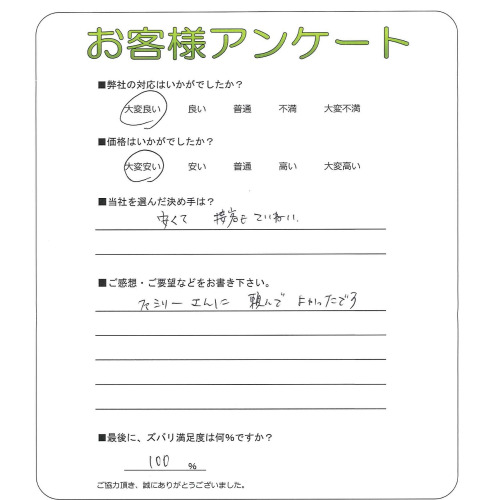 お客様アンケート
■弊社の対応はいかがでしたか？
大変良い 良い 普通 不満 大変不満
■価格はいかがでしたか？
大変安い 安い 普通 高い 大変高い
■当社を選んだ決め手は？
安くて 接客もていねい
■ご感想・ご要望などをお書き下さい。
ファミリーさんに 頼んで よかったです
■最後に、ズバリ満足度は何％ですか？
100 ％
ご協力頂き、誠にありがとうございました。